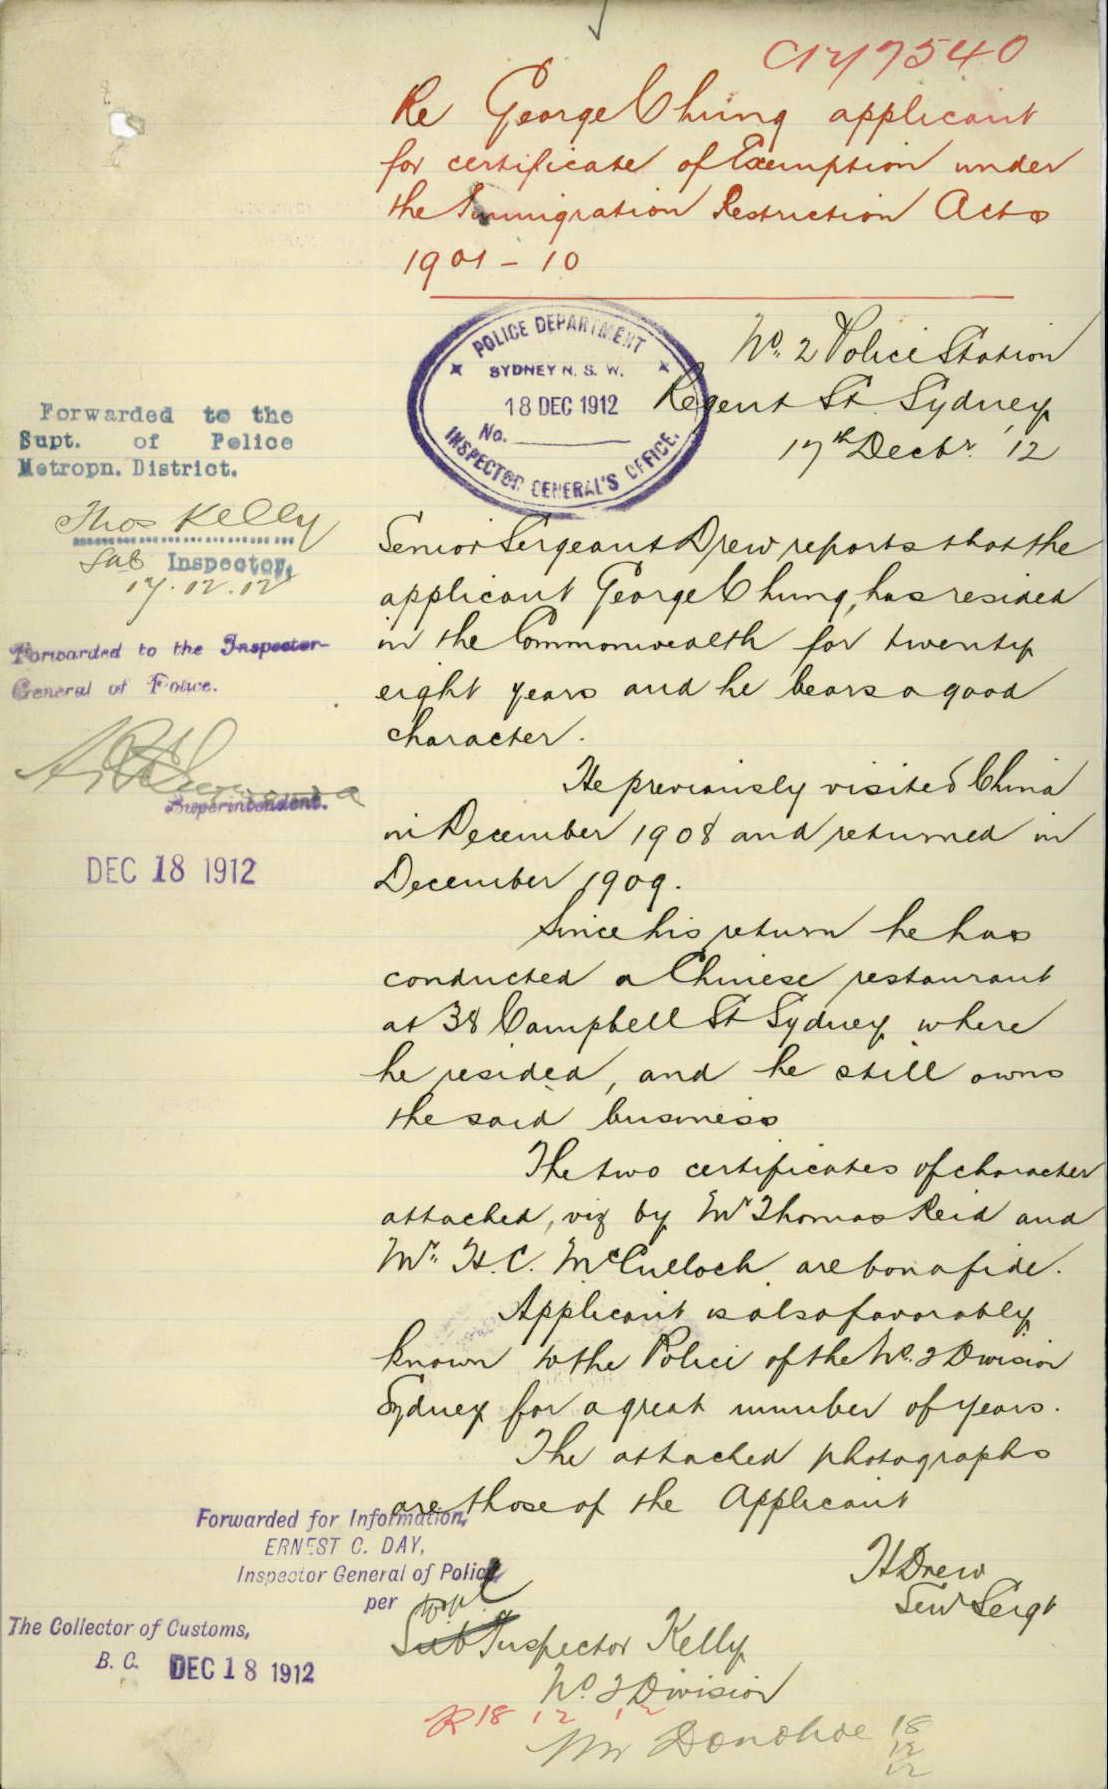 C12/7540
Re George Chung applicant
for certificate of Exemption under
the Immigration Restriction Acts
1901 - 10
POLICE DEPARTMENT
SYDNEY N. S. W.
18 DEC 1912
No.
INSPECTOR GENERAL'S OFFICE.
No. 2 Police Station
Regent St. Sydney
17th Decbr. 12
Forwarded to the
Supt. of Police
Metropn. District.
Thos Kelly
Sub Inspector,
17.12.12
Forwarded to the Inspector-
General of Police.
Superintendent.
DEC 18 1912
Senior Sergeant Drew reports that the
applicant George Chung, has resided
in the Commonwealth for twenty
eight years and he bears a good
character.
He previously visited China
in December 1908 and returned in
December 1909.
Since his return he has
conducted a Chinese restaurant
at 38 Campbell St Sydney where
he resided, and he still owns
the said business
The two certificates of character
attached, viz by Mr Thomas Reid and
Mr. H.C. McCulloch are bonafide.
Applicant is also favorably
known to the Police of the No. 2 Division
Sydney for a great number of years.
The attached photographs
are those of the Applicant
H Drew
Sen Sergt
Forwarded for Information,
ERNEST C. DAY,
Inspector General of Police
per
The Collector of Customs,
B. C. DEC 18 1912
Sub Inspector Kelly
No. 2 Division
R 18 12 12
Mr Donohoe 18
12
12